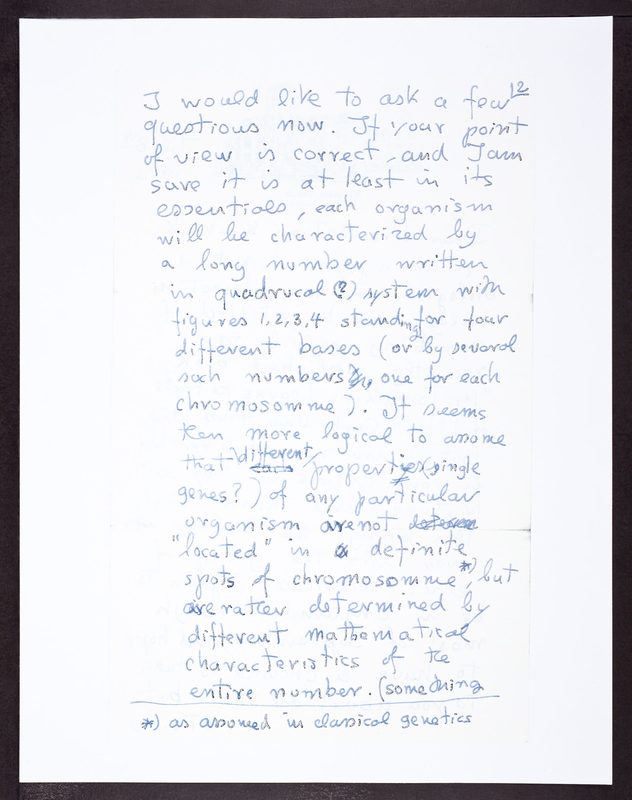 I would like to ask a few
12
questions now. If your point
of view is correct, and I am
save it is at least in its
essentials, each organism
will be characterized by
a long number written
in quadrucal (?) system with
figures 1,2,3,4 standing for four
different bases (or by several
such numbers, one for each
chromosomme). It seems
ken more logical to assume
that different properties (single
genes?) of any particular
organism are not
"located" in definite
spots of chromosomme *), but
are rather determined by
different mathematical
characteristics of the
entire number. (something
*) as assumed in classical genetics